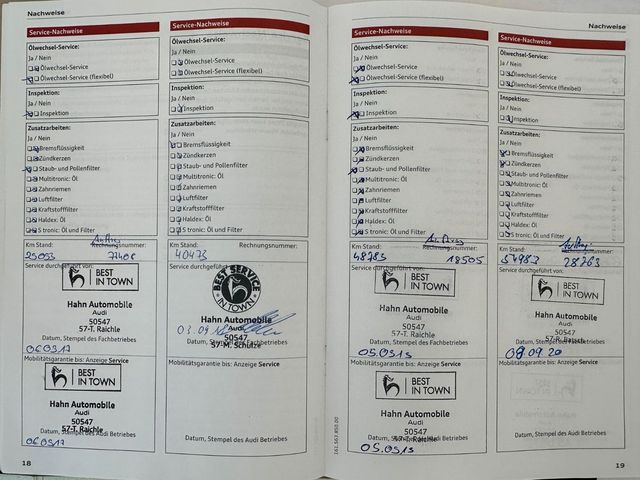 Nachweise
Service-Nachweise
Ölwechsel-Service:
Ja / Nein
Ölwechsel-Service
Ölwechsel-Service (flexibel)
Inspektion:
Ja / Nein
Inspektion
Zusatzarbeiten:
Ja / Nein
Bremsflüssigkeit
Zündkerzen
Staub- und Pollenfilter
Multitronic: Öl
Zahnriemen
Luftfilter
Kraftstofffilter
Haldex: Öl
S tronic: Öl und Filter
Km Stand: Rechnungsnummer:
Service durchgeführt von:
BEST
IN TOWN
Hahn Automobile
Audi
50547
57-T. Raichle
Datum, Stempel des Fachbetriebes
060917
Mobilitätsgarantie bis: Anzeige Service
BEST
IN TOWN
Hahn Automobile
Audi
50547
57-T. Raichle
Datum, Stempel des Audi Betriebes
060917
18
Service-Nachweise
Ölwechsel-Service:
Ja / Nein
Ölwechsel-Service
Ölwechsel-Service (flexibel)
Inspektion:
Ja / Nein
Inspektion
Zusatzarbeiten:
Ja / Nein
Bremsflüssigkeit
Zündkerzen
Staub- und Pollenfilter
Multitronic: Öl
Zahnriemen
Luftfilter
Kraftstofffilter
Haldex: Öl
S tronic: Öl und Filter
Km Stand: Rechnungsnummer:
40473
Service durchgeführt
BEST SERVICE
IN TOWN
Hahn Automobile
Audi
50547
57-M. Schütze
Datum, Stempel des Fachbetriebes
Mobilitätsgarantie bis: Anzeige Service
Datum, Stempel des Audi Betriebes
Nachweise
Service-Nachweise
Ölwechsel-Service:
Ja / Nein
Ölwechsel-Service
Ölwechsel-Service (flexibel)
Inspektion:
Ja / Nein
Inspektion
Zusatzarbeiten:
Ja / Nein
Bremsflüssigkeit
Zündkerzen
Staub- und Pollenfilter
Multitronic: Öl
Zahnriemen
Luftfilter
Kraftstofffilter
Haldex: Öl
S tronic: Öl und Filter
Km Stand: Rechnungsnummer:
48783 18505
Service durchgeführt von:
BEST
IN TOWN
Hahn Automobile
Audi
50547
57-T. Raichle
Datum, Stempel des Fachbetriebes
Mobilitätsgarantie bis: Anzeige Service
BEST
IN TOWN
Hahn Automobile
Audi
50547
57-T. Raichle
Datum, Stempel des Audi Betriebes
Service-Nachweise
Ölwechsel-Service:
Ja / Nein
Ölwechsel-Service
Ölwechsel-Service (flexibel)
Inspektion:
Ja / Nein
Inspektion
Zusatzarbeiten:
Ja / Nein
Bremsflüssigkeit
Zündkerzen
Staub- und Pollenfilter
Multitronic: Öl
Zahnriemen
Luftfilter
Kraftstofffilter
Haldex: Öl
S tronic: Öl und Filter
Km Stand: Rechnungsnummer:
54983 28763
Service durchgeführt von:
BEST
IN TOWN
Hahn Automobile
Audi
50547
57-T. Raichle
Datum, Stempel des Fachbetriebes
Mobilitätsgarantie bis: Anzeige Service
Datum, Stempel des Audi Betriebes
19